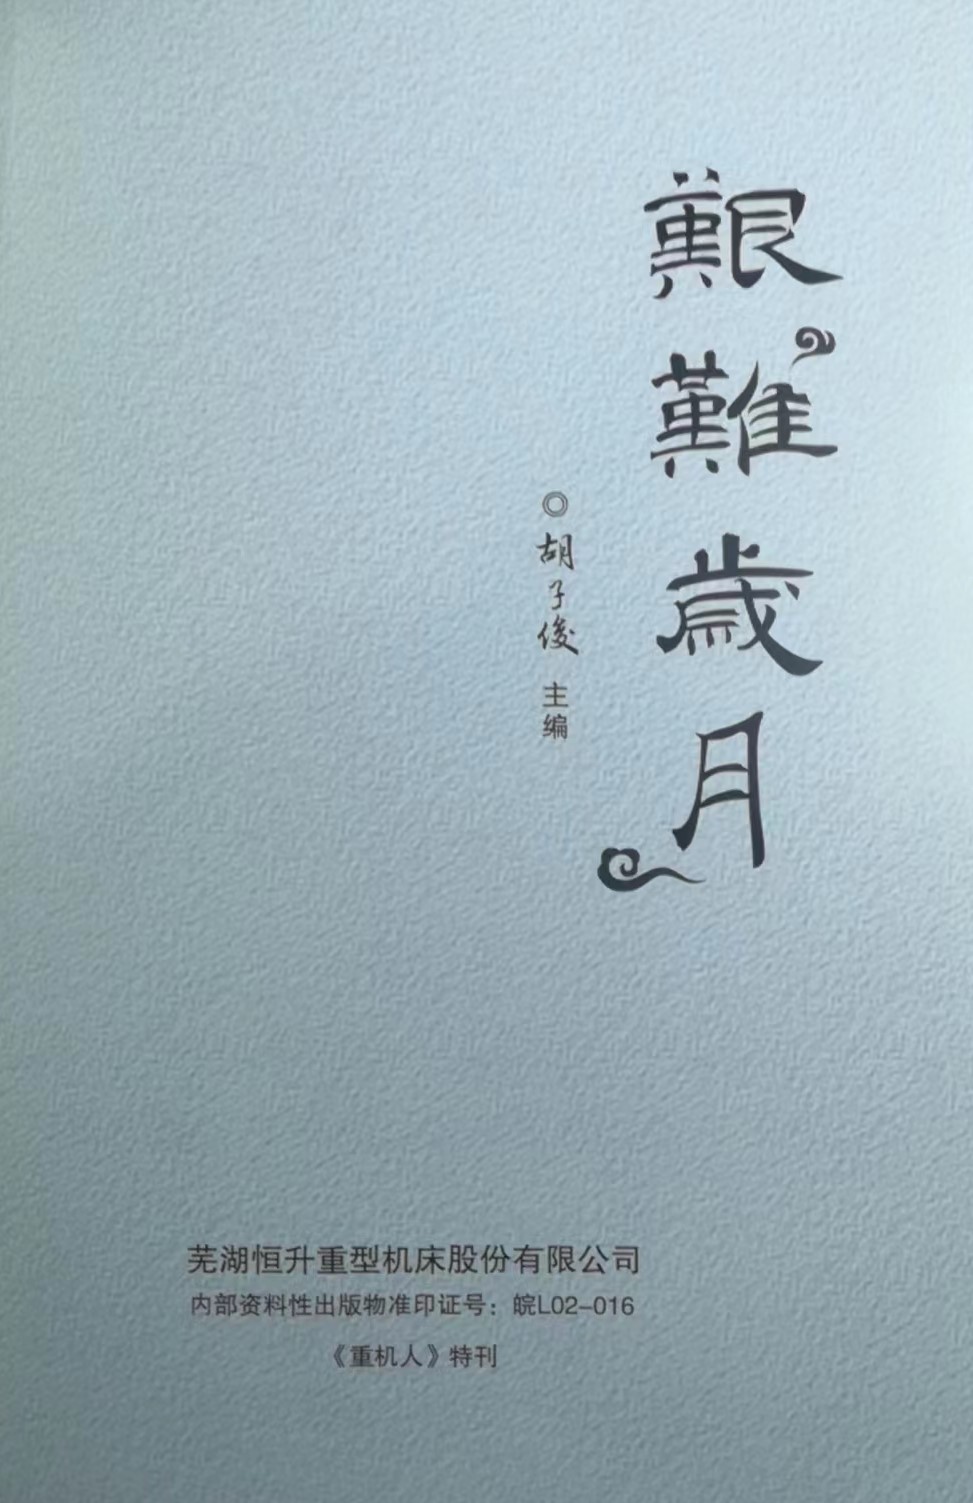 艱難歲月
◎胡子俊 主编
芜湖恒升重型机床股份有限公司
内部资料性出版物准印证号：皖L02-016
《重机人》特刊